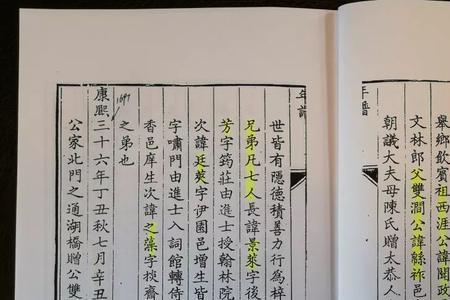 舉鄉飲賓祖西涯公諱聞政
文林郎父雙澗公諱緜祚邑
朝議大夫母陳氏贈太恭人
年譜
年譜
世皆有隱德積善力行為梓
兄弟凡七人長諱景萊字後
芳字筠莊由進士授翰林院
次諱廷字伊園邑增生皆
字嘯門由進士入詞館轉侍
香邑庠生次諱之藻字掞齋
之弟也
1697
康熙三十六年丁丑秋七月辛丑
公家北門之通湖橋贈公雙